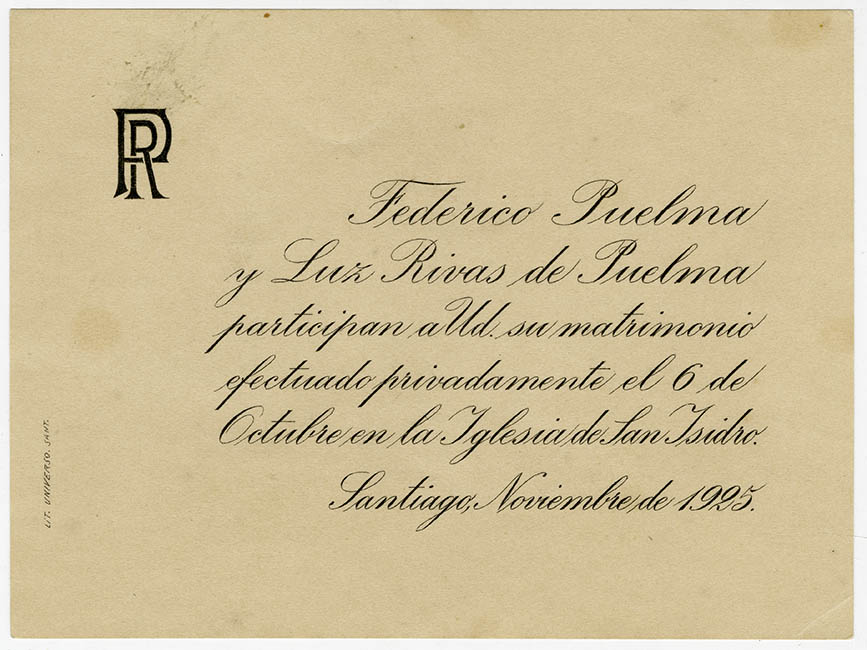 PR
Federico Puelma
y Luz Rivas de Puelma
participan a Ud. su matrimonio
efectuado privadamente el 6 de
Octubre en la Iglesia de San Isidro.
Santiago, Noviembre de 1925.
LIT. UNIVERSO. SANT.